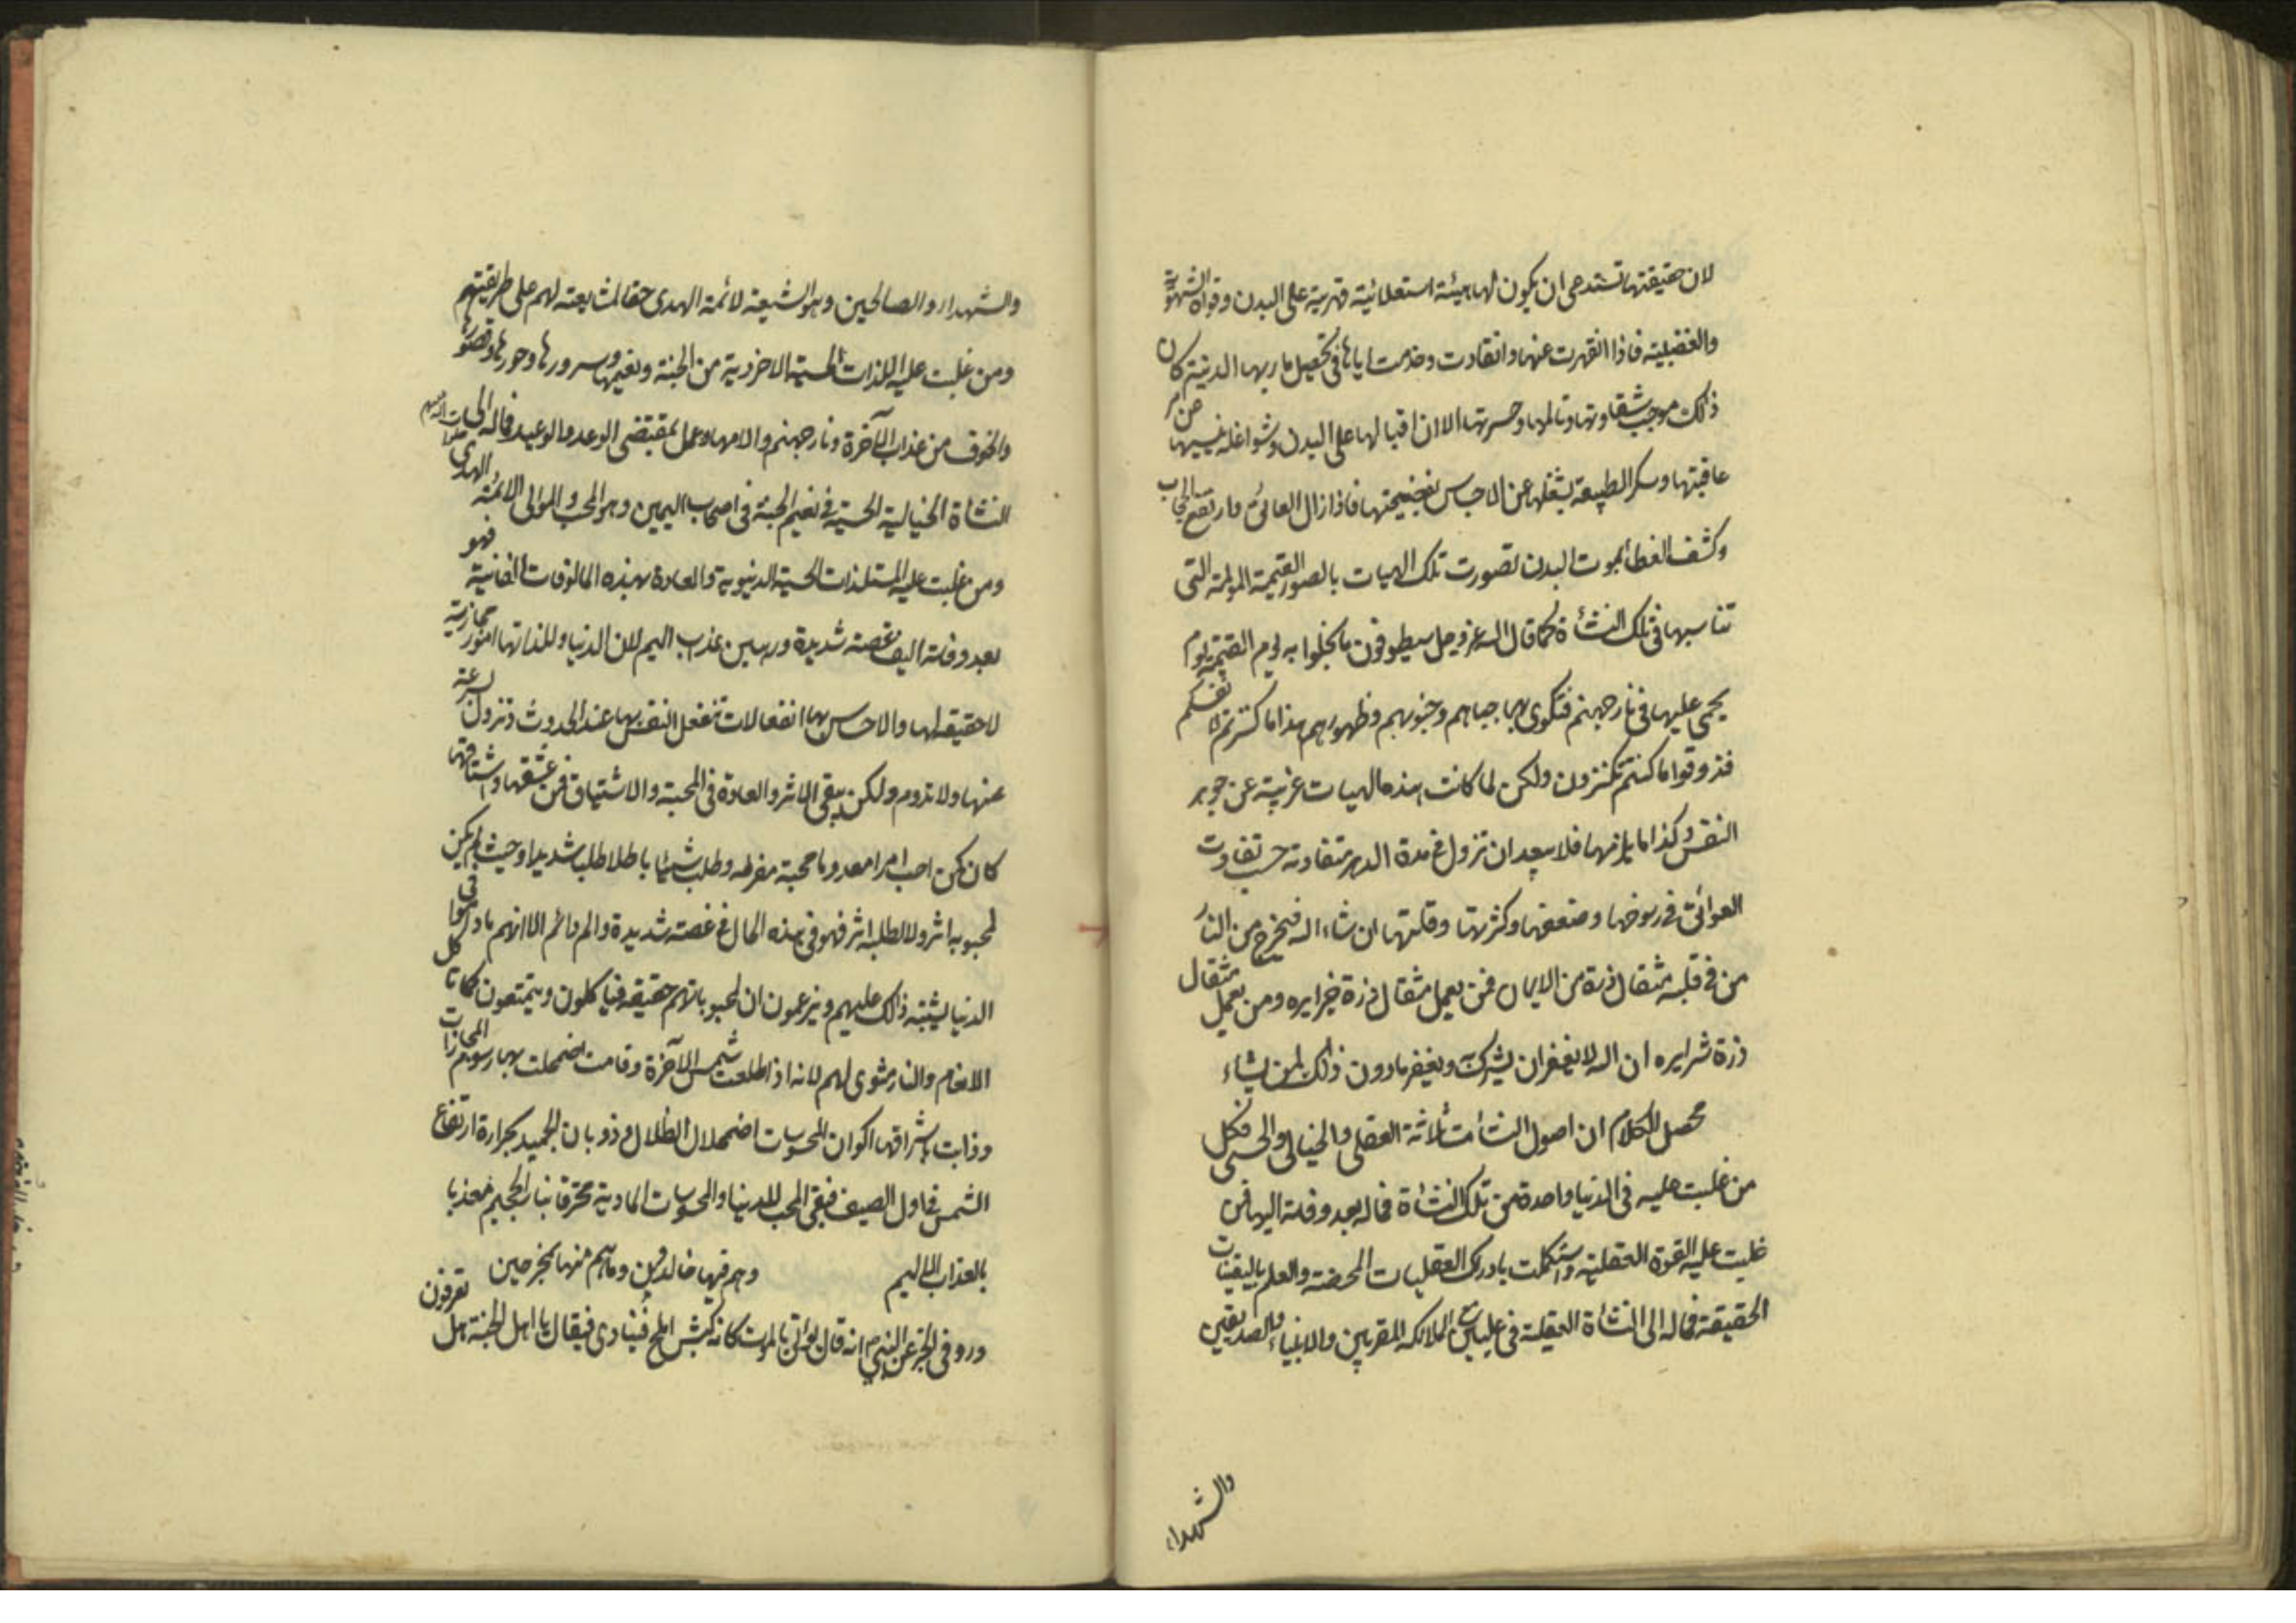 لان حقيقتها تستدعى ان يكون لها هيئة استعلائية قهرية على البدن وقواه الشهوية
والغضبية فاذا انقهرت عنها وانقادت وخدمت اياها فى تحصيل ماربها الدنية كان
ذلك موجب شقاوتها وتالمها وحسرتها الا ان اقبالها على البدن وشواغله ينسيها عن امر
عاقبتها وسكر الطبيعة يشغلها عن الاحساس بفضيحتها فاذا زال العائق وارتفع الحجاب
وكشف الغطا بموت البدن تصورت تلك الهيات بالصور القبيحة المولمة التى
تناسبها فى تلك النشأة كما قال الله عز وجل سيطوقون ما بخلوا به يوم القيمة يوم
يحمى عليها فى نار جهنم فتكوى بها جباههم وجنوبهم وظهورهم هذا ما كنزتم لانفسكم
فذوقوا ما كنتم تكنزون ولكن لما كانت هذه الهيات غريبة عن جوهر
النفس وكذا ما يلزمها فلا يبعد ان تزول فى مدة الدهر متفاوتة حسب تفاوت
العوائق فى رسوخها وضعفها وكثرتها وقلتها ان شاء الله فيخرج من النار
من فى قلبه مثقال ذرة من الايمان فمن يعمل مثقال ذرة خيرا يره ومن يعمل مثقال
ذرة شرا يره ان الله لا يغفر ان يشرك به ويغفر ما دون ذلك لمن يشاء
محصل الكلام ان اصول النشأت ثلاثة العقلى والخيالى والحسى فكل
من غلبت عليه فى الدنيا واحدة من تلك النشاة فماله بعد وفاته اليها فمن
غلبت عليه القوة العقلية واستكملت بادراك العقليات المحضة والعلم باليقينات
الحقيقة فماله الى النشاة العقلية فى عليين مع الملائكه المقربين والانبياء والصديقين
والشهداء
والشهداء والصالحين وهو الشيعة لائمة الهدى حقا لمشايعته لهم على طريقتهم
ومن غلبت عليه اللذات الحسية الاخروية من الجنة ونعيمها وسرورها وحورها وقصورها
والخوف من عذاب الآخرة ونار جهنم والامها وعمل بمقتضى الوعد والوعيد فماله الى
النشاة الخيالية الحسية فى نعيم الجنة فى اصحاب اليمين وهو المحب والموالى لائمة الهدى
ومن غلبت عليه المستلذات الحسية الدنيوية والعادة بهذه المالوفات الفانية فهو
بعد وفاته اليف غصة شديدة ورهين عذاب اليم لان الدنيا ولذاتها امور مجازية
لا حقيقة لها والاحساس بها انفعالات تنفعل النفس بها عند الحدوث وتزول بسرعة
عنها ولا تدوم ولكن يبقى الاثر والعادة فى المحبة والاشتياق فمن عشقها واشتاقها
كان كمن احب امرا معدوما محبة مفرطه وطلب شيئا باطلا طلب شديدا وحيث لم يكن
لمحبوبه اثر ولا لطلبه اثر فهو فى هذه الحال فى غصة شديدة والم دائم الا انهم ما داموا فى
الدنيا يشتبه ذلك عليهم ويزعمون ان لمحبوباتهم حقيقه فياكلون ويتمتعون كما تاكل
الانعام والنار مثوى لهم لانه اذا طلعت شمس الآخرة وقامت اضمحلت بها رسوم المجازات
وذابت باشراقها اكوان المحسوسات اضمحلال الظلال وذوبان الجميد بحرارة ارتفاع
الشمس فى اول الصيف فبقى المحب للدنيا والمحسوسات المادية محترقا بنار الجحيم معذبا
بالعذاب الاليم وهم فيها خالدين وما هم منها بمخرجين
ورد فى الخبر عن النبى انه قال يؤتى بالموت كانه كبش املح فينادى فيقال يا اهل الجنة هل تعرفون